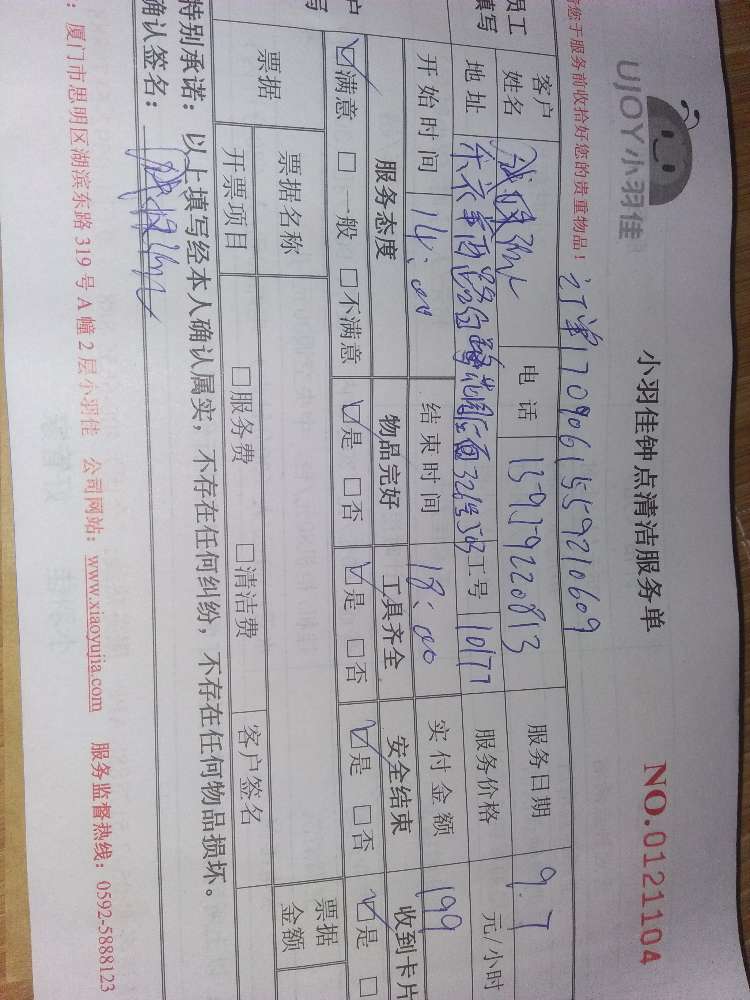 UJOY小羽佳
小羽佳钟点清洁服务单
NO.0121104
您于服务前收拾好您的贵重物品！
订单1709061559210609
员工
填写
客户
姓名
电话 13959220813 服务日期 9.7
地址 32号503 工号 10177 服务价格 元/小时
开始时间 14:00 结束时间 18:00 实付金额 199
户
写
服务态度 物品完好 工具齐全 安全结束 收到卡片
☑满意 □一般 □不满意 ☑是 □否 ☑是 □否 ☑是 □否 ☑是 □
票据 票据名称 票据
金额
开票项目 □服务费 □清洁费 客户签名
特别承诺：以上填写经本人确认属实，不存在任何纠纷，不存在任何物品损坏。
确认签名：
：厦门市思明区湖滨东路319号A幢2层小羽佳 公司网站：www.xiaoyujia.com 服务监督热线：0592-5888123